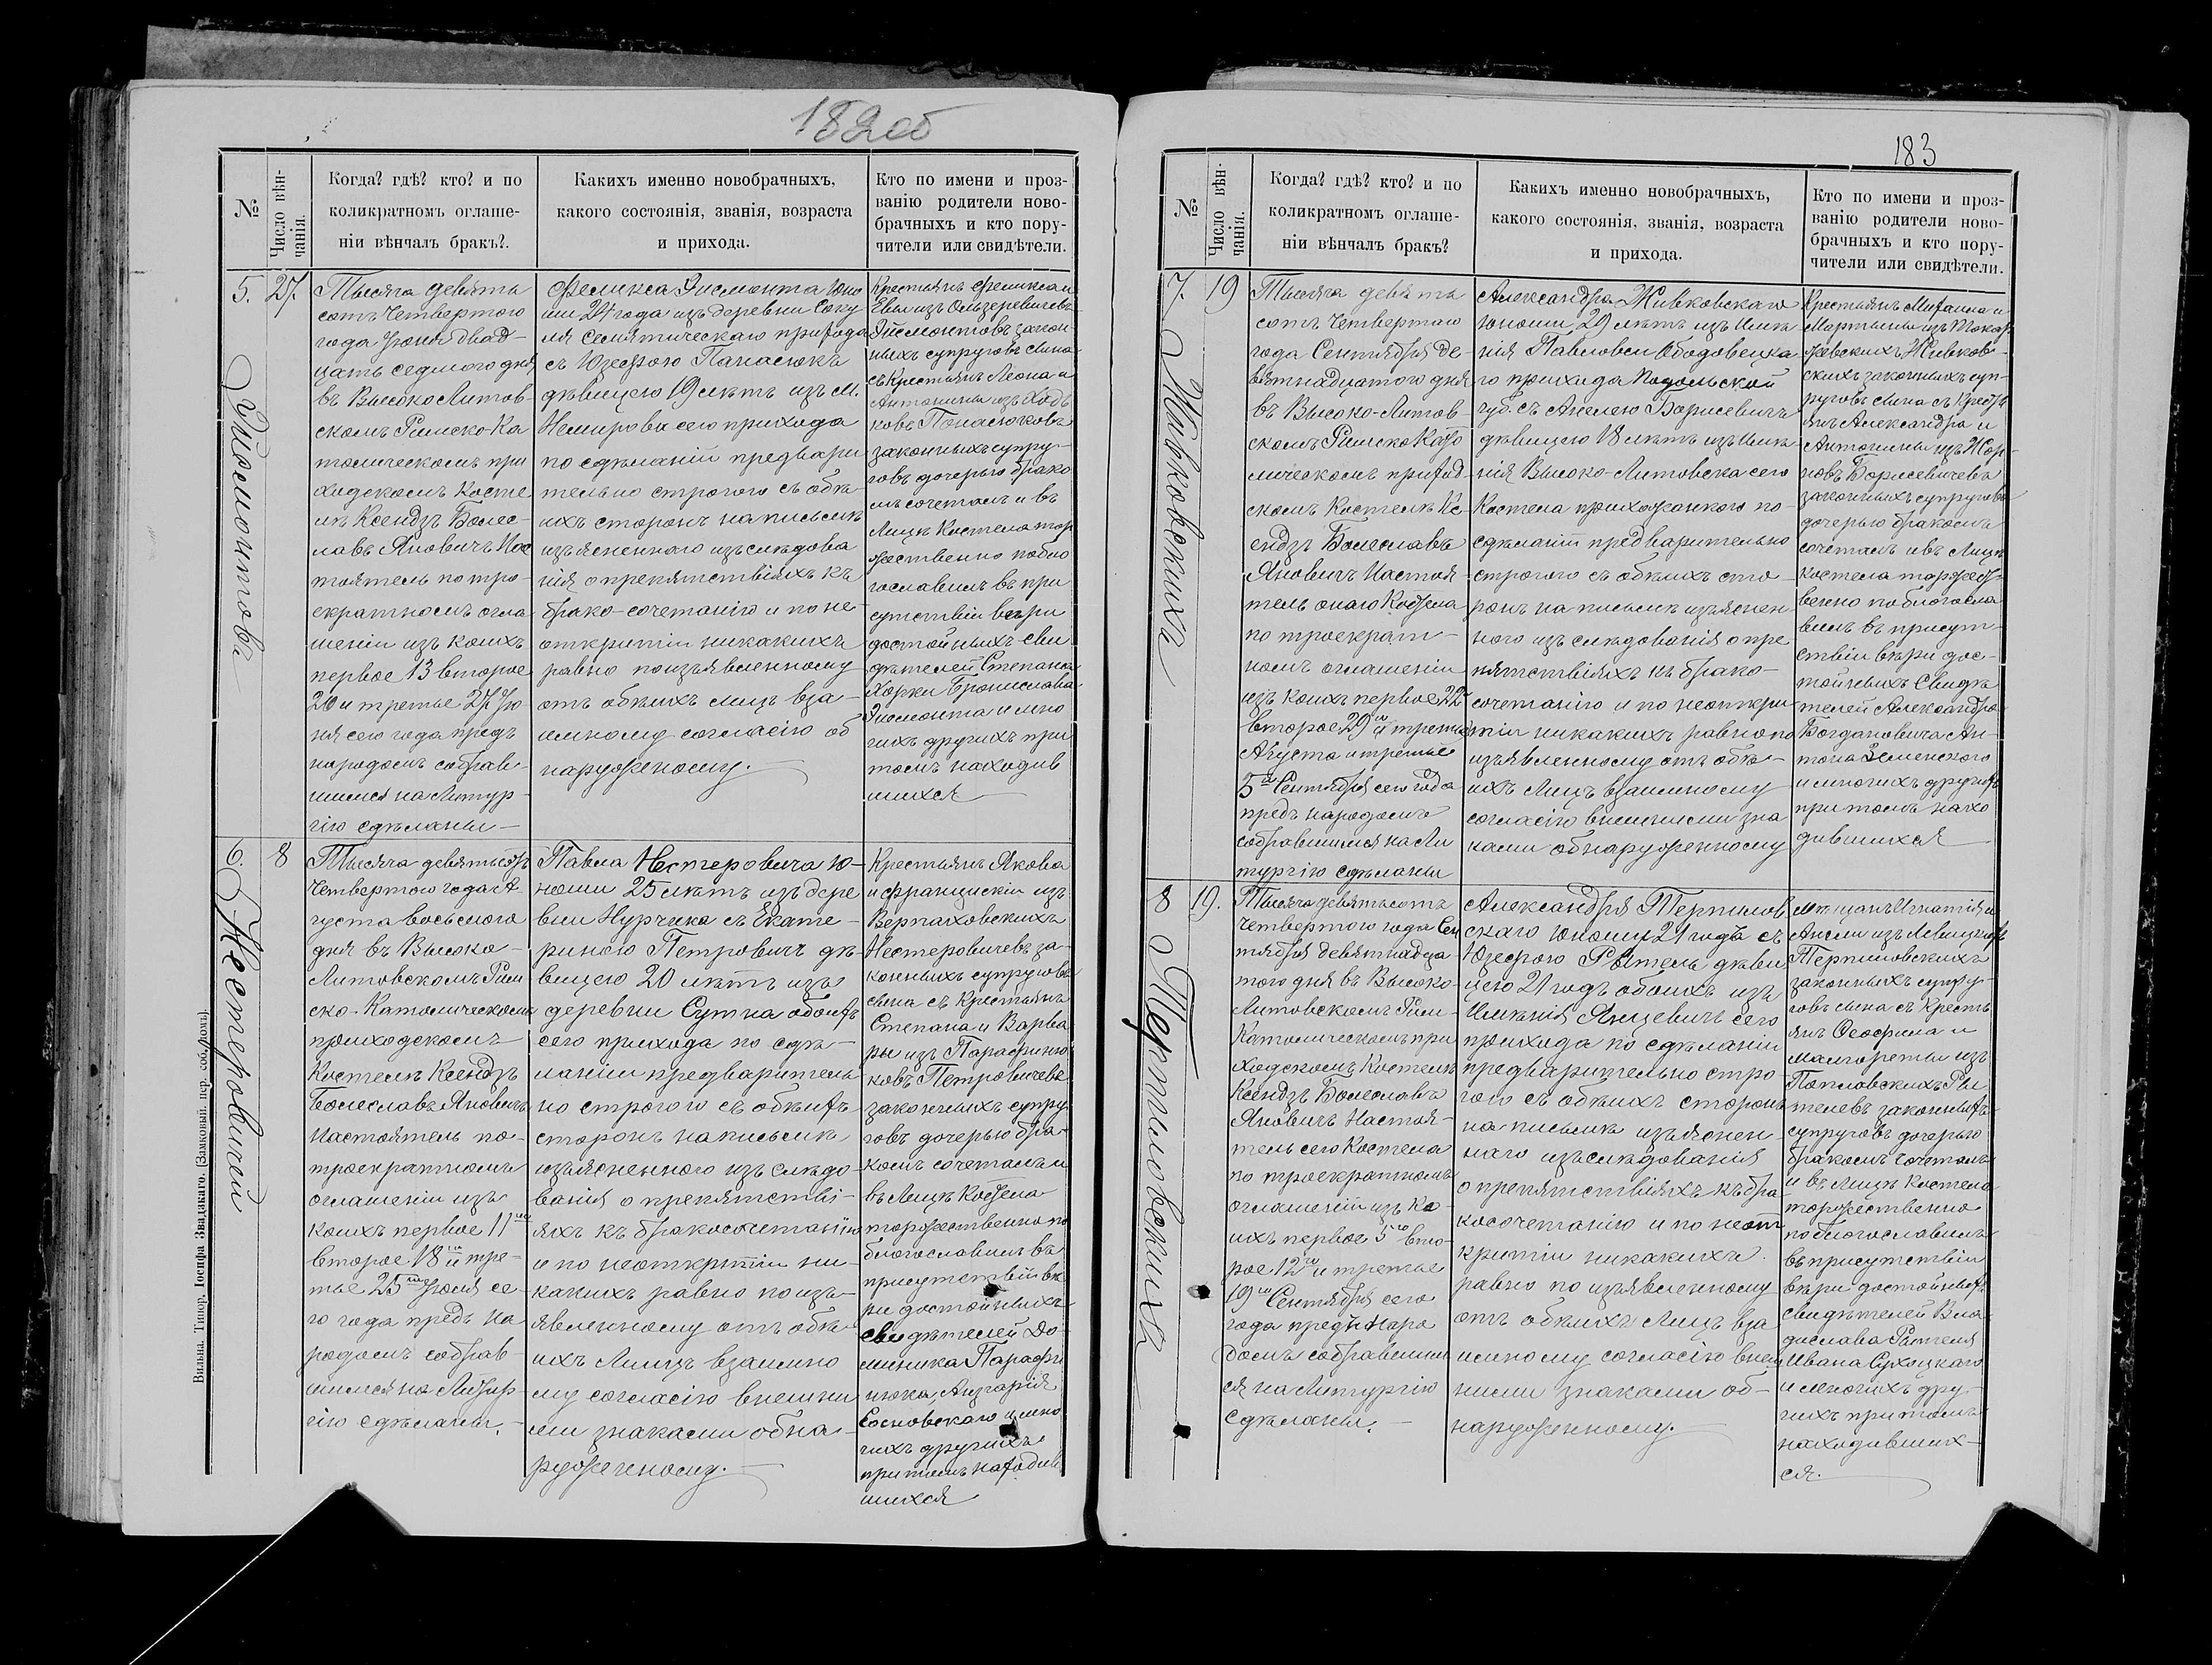 182об
№
Число вѣн-
чанія.
Когда? гдѣ? кто? и по
коликратномъ оглаше-
ніи вѣнчалъ бракъ?.
Какихъ именно новобрачныхъ,
какого состоянія, званія, возраста
и прихода.
Кто по имени и проз-
ванію родители ново-
брачныхъ и кто пору-
чители или свидѣтели.
5.
Эйсмонтовъ
27.
Тысяча девять
сотъ Четвертого
года Іюня двад-
цать седмого дня
въ Высоко Литов-
скомъ Римско-Ка
толическомъ при
ходскомъ Косте
лѣ Ксендзъ Болес-
лавъ Яновичъ Нас
тоятель по тро-
екратномъ огла
шеніи изъ коихъ
первое 13 второе
20 и третье 27 Ію
ня сего года предъ
народомъ собрав-
шимся на Литур-
гію сдѣланы —
Феликса Эйсмонта юно
ши 24 года изъ деревни Соку
ля Семятическаго прихода
съ Юзефою Панасюкъ
дѣвицею 19 лѣтъ изъ м.
Немирова сего прихода
по сдѣланіи предвари
тельно строгого съ обѣ
ихъ сторонъ на письмѣ
изъясненнаго изъслѣдова
нія о препятствіяхъ къ
брако-сочетанію и по не-
открытіи никакихъ
равно по изъявленному
отъ обѣихъ лицъ вза-
имному согласію об
наруженому. —
Крестьянъ Феликса и
Евы изъ
Эйсмонтовъ закон
ныхъ супруговъ сына
съ Крестьянъ Леона и
Антонины изъ Ходь
ковъ Панасюковъ
законныхъ супру-
говъ дочерью брако
мъ сочеталъ и въ
Лицѣ Костела тор
жественно побло
гославилъ въ при
сутствіи вѣры
достойныхъ сви
дѣтелей Степана
Хорки Бронислава
Эйсмонта и мно
гихъ другихъ при
томъ находив
шихся
6.
Нестеровичей
8
Тысяча девятьсотъ
Четвертого года Ав
густа восьмого
дня въ Высоко-
Литовскомъ Рим
ско-Католическомъ
приходскомъ
Костелѣ Ксендзъ
Болеславъ Яновичъ
Настоятель по-
троекратномъ
оглашеніи изъ
коихъ первое 11го
второе 18го и тре-
тье 25го Іюля се-
го года предъ на
родомъ собрав-
шимся на Литур
гію сдѣланы. —
Павла Нестеровича ю-
ноши 25 лѣтъ изъ дере
вни Нурчика съ Екате-
риною Петровичъ дѣ-
вицею 20 лѣтъ изъ
деревни Сутна обоихъ
сего прихода по сдѣ-
ланіи предваритель
но строгого съ обѣихъ
сторонъ на письмѣ
изъясненного изъслѣдо
ванія о препятстві-
яхъ къ бракосочетанію
и по неоткрытіи ни-
какихъ равно по изъ-
явленному отъ обѣ
ихъ Лицъ взаимно
му согласію внешни
ми знаками обна-
руженному. —
Крестьянъ Якова
и Францискіи изъ
Верпаховскихъ
Нестеровичевъ за-
конныхъ супруговъ
сына съ Крестьянъ
Степана и Варва
ры изъ Парафиню
ковъ Петровичевъ
законныхъ супру
говъ дочерью бра-
комъ сочеталъ и
въ Лицѣ Костела
торжественно по
благославилъ въ
присутствіи вѣ
ры достойныхъ
свидѣтелей До
миника Парафи
нюка,
Сосновскаго и мно
гихъ другихъ
притомъ находив
шихся
Вильна. Типор. Іосифа Завадзкаго. (Знаковый. пер. соб. ром.).
183
№
Число вѣн-
чанія.
Когда? гдѣ? кто? и по
коликратномъ оглаше-
ніи вѣнчалъ бракъ?
Какихъ именно новобрачныхъ,
какого состоянія, званія, возраста
и прихода.
Кто по имени и проз-
ванію родители ново-
брачныхъ и кто пору-
чители или свидѣтели.
7.
Живковскихъ
19
Тысяча девять
сотъ Четвертаго
года Сентября де-
вятнадцатого дня
въ Высоко-Литов-
скомъ Римско Като
лическомъ приход-
скомъ Костелѣ Кс-
ендзъ Болеславъ
Яновичъ Настоя-
тель онаго Костела
по троекрат-
номъ оглашеніи
изъ коихъ первое 22
второе 29го и третье
Августа и третье
5го Сентября сего года
предъ народомъ
собравшимся на Ли
тургію сдѣланы
Александра Живковскаго
юноши 29 лѣтъ изъ имѣ
нія Павловки Ободовецка
го прихода Подольской
губ. съ Анелею Борисевичъ
дѣвицею 18 лѣтъ изъ имѣ
нія Высоко-Литовска сего
Костела прихожанкою по-
сдѣланіи предварительно
строгого съ обѣихъ сто-
ронъ на письмѣ изъяснен
ного изъслѣдованія о пре
пятствіяхъ къ брако-
сочетанію и по неоткры
тіи никакихъ равно по
изъявленному отъ обѣ-
ихъ Лицъ взаимному
согласію внешними зна
ками обнаруженному
Крестьянъ Михаила и
Мартины изъ Токар
жевскихъ Живков-
скихъ законныхъ суп-
руговъ сына съ Кресть
янъ Александра и
Антонины изъ
Борисевичевъ
законныхъ супруговъ
дочерью бракомъ
сочеталъ и въ Лицѣ
костела торжест-
венно поблогосла
вилъ въ присут-
ствіи вѣры дос-
тойныхъ Свидѣ
телей Александра
Богдановича Ан-
тона Зеленского
и многихъ другихъ
при томъ нахо
дившихся
8
Терпиловскихъ
19.
Тысяча девятьсотъ
Четвертого года Сен
тября девятнадца
того дня въ Высоко-
Литовскомъ Рим-
Католическомъ при
ходскомъ Костелѣ
Ксендзъ Болеславъ
Яновичъ Настоя-
тель сего Костела
по троекратномъ
оглашеніи изъ ко-
ихъ первое 5го вто-
рое 12го и третье
19го Сентября сего
года предъ наро
домъ собравшим
ся на Литургію
сдѣланы. —
Александра Терпилов
скаго юноши 21 годъ съ
Юзефою Рытель дѣви
цею 21 годъ обоихъ изъ
Имѣнія Янцевичъ сего
прихода по сдѣланіи
предварительно стро-
гого съ обѣихъ сторонъ
на письмѣ изъяснен
наго изъслѣдованія
о препятствіяхъ къ бра
косочетанію и по неот
крытіи никакихъ
равно по изъявленному
отъ обѣихъ Лицъ вза
имному согласію внеш
ними знаками об-
наруженному.
Мѣщанъ Игнатія и
Анели изъ
Терпиловскихъ
законныхъ супру-
говъ сына съ Кресть
янъ Ѳеофила и
Малгореты изъ
Поплавскихъ Ры
телевъ законныхъ
супруговъ дочерью
бракомъ сочеталъ
и въ Лицѣ Костела
торжественно
поблогославилъ
въ присутствіи
вѣры достойныхъ
свидѣтелей Вла
дислава Рытеля
Ивана Сухоцкаго
и многихъ дру-
гихъ притомъ
находивших-
ся.